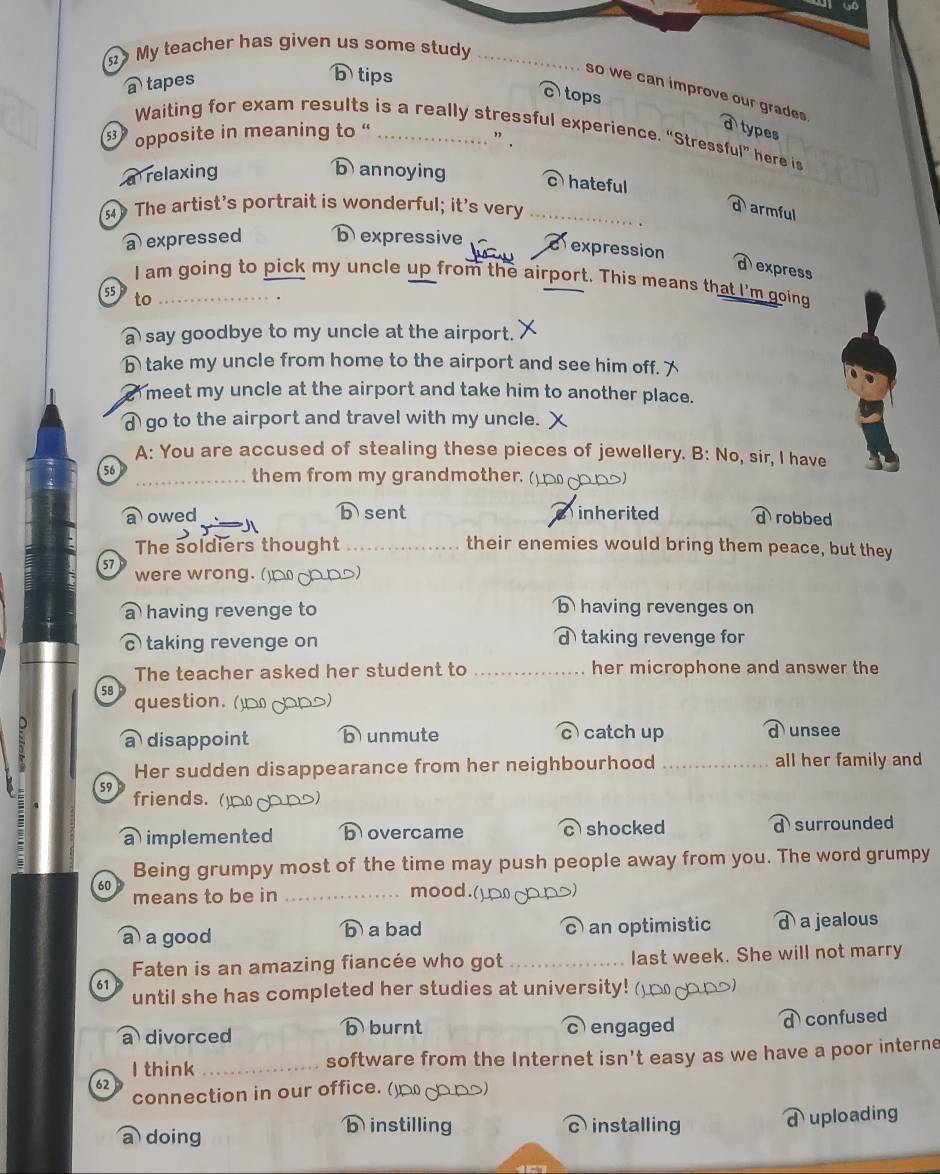 52 My teacher has given us some study ............... so we can improve our grades.
a tapes b tips c tops d types
53 Waiting for exam results is a really stressful experience. "Stressful" here is
opposite in meaning to " ............... ".
a relaxing b annoying c hateful d armful
54 The artist's portrait is wonderful; it's very ............... .
a expressed b expressive c expression d express
55 I am going to pick my uncle up from the airport. This means that I'm going
to ............... .
a say goodbye to my uncle at the airport. X
b take my uncle from home to the airport and see him off. X
c meet my uncle at the airport and take him to another place.
d go to the airport and travel with my uncle. X
56 A: You are accused of stealing these pieces of jewellery. B: No, sir, I have
............... them from my grandmother.
a owed b sent c inherited d robbed
57 The soldiers thought ............... their enemies would bring them peace, but they
were wrong.
a having revenge to b having revenges on
c taking revenge on d taking revenge for
58 The teacher asked her student to ............... her microphone and answer the
question.
a disappoint b unmute c catch up d unsee
59 Her sudden disappearance from her neighbourhood ............... all her family and
friends.
a implemented b overcame c shocked d surrounded
60 Being grumpy most of the time may push people away from you. The word grumpy
means to be in ............... mood.
a a good b a bad c an optimistic d a jealous
61 Faten is an amazing fiancée who got ............... last week. She will not marry
until she has completed her studies at university!
a divorced b burnt c engaged d confused
62 I think ............... software from the Internet isn't easy as we have a poor interne
connection in our office.
a doing b instilling c installing d uploading